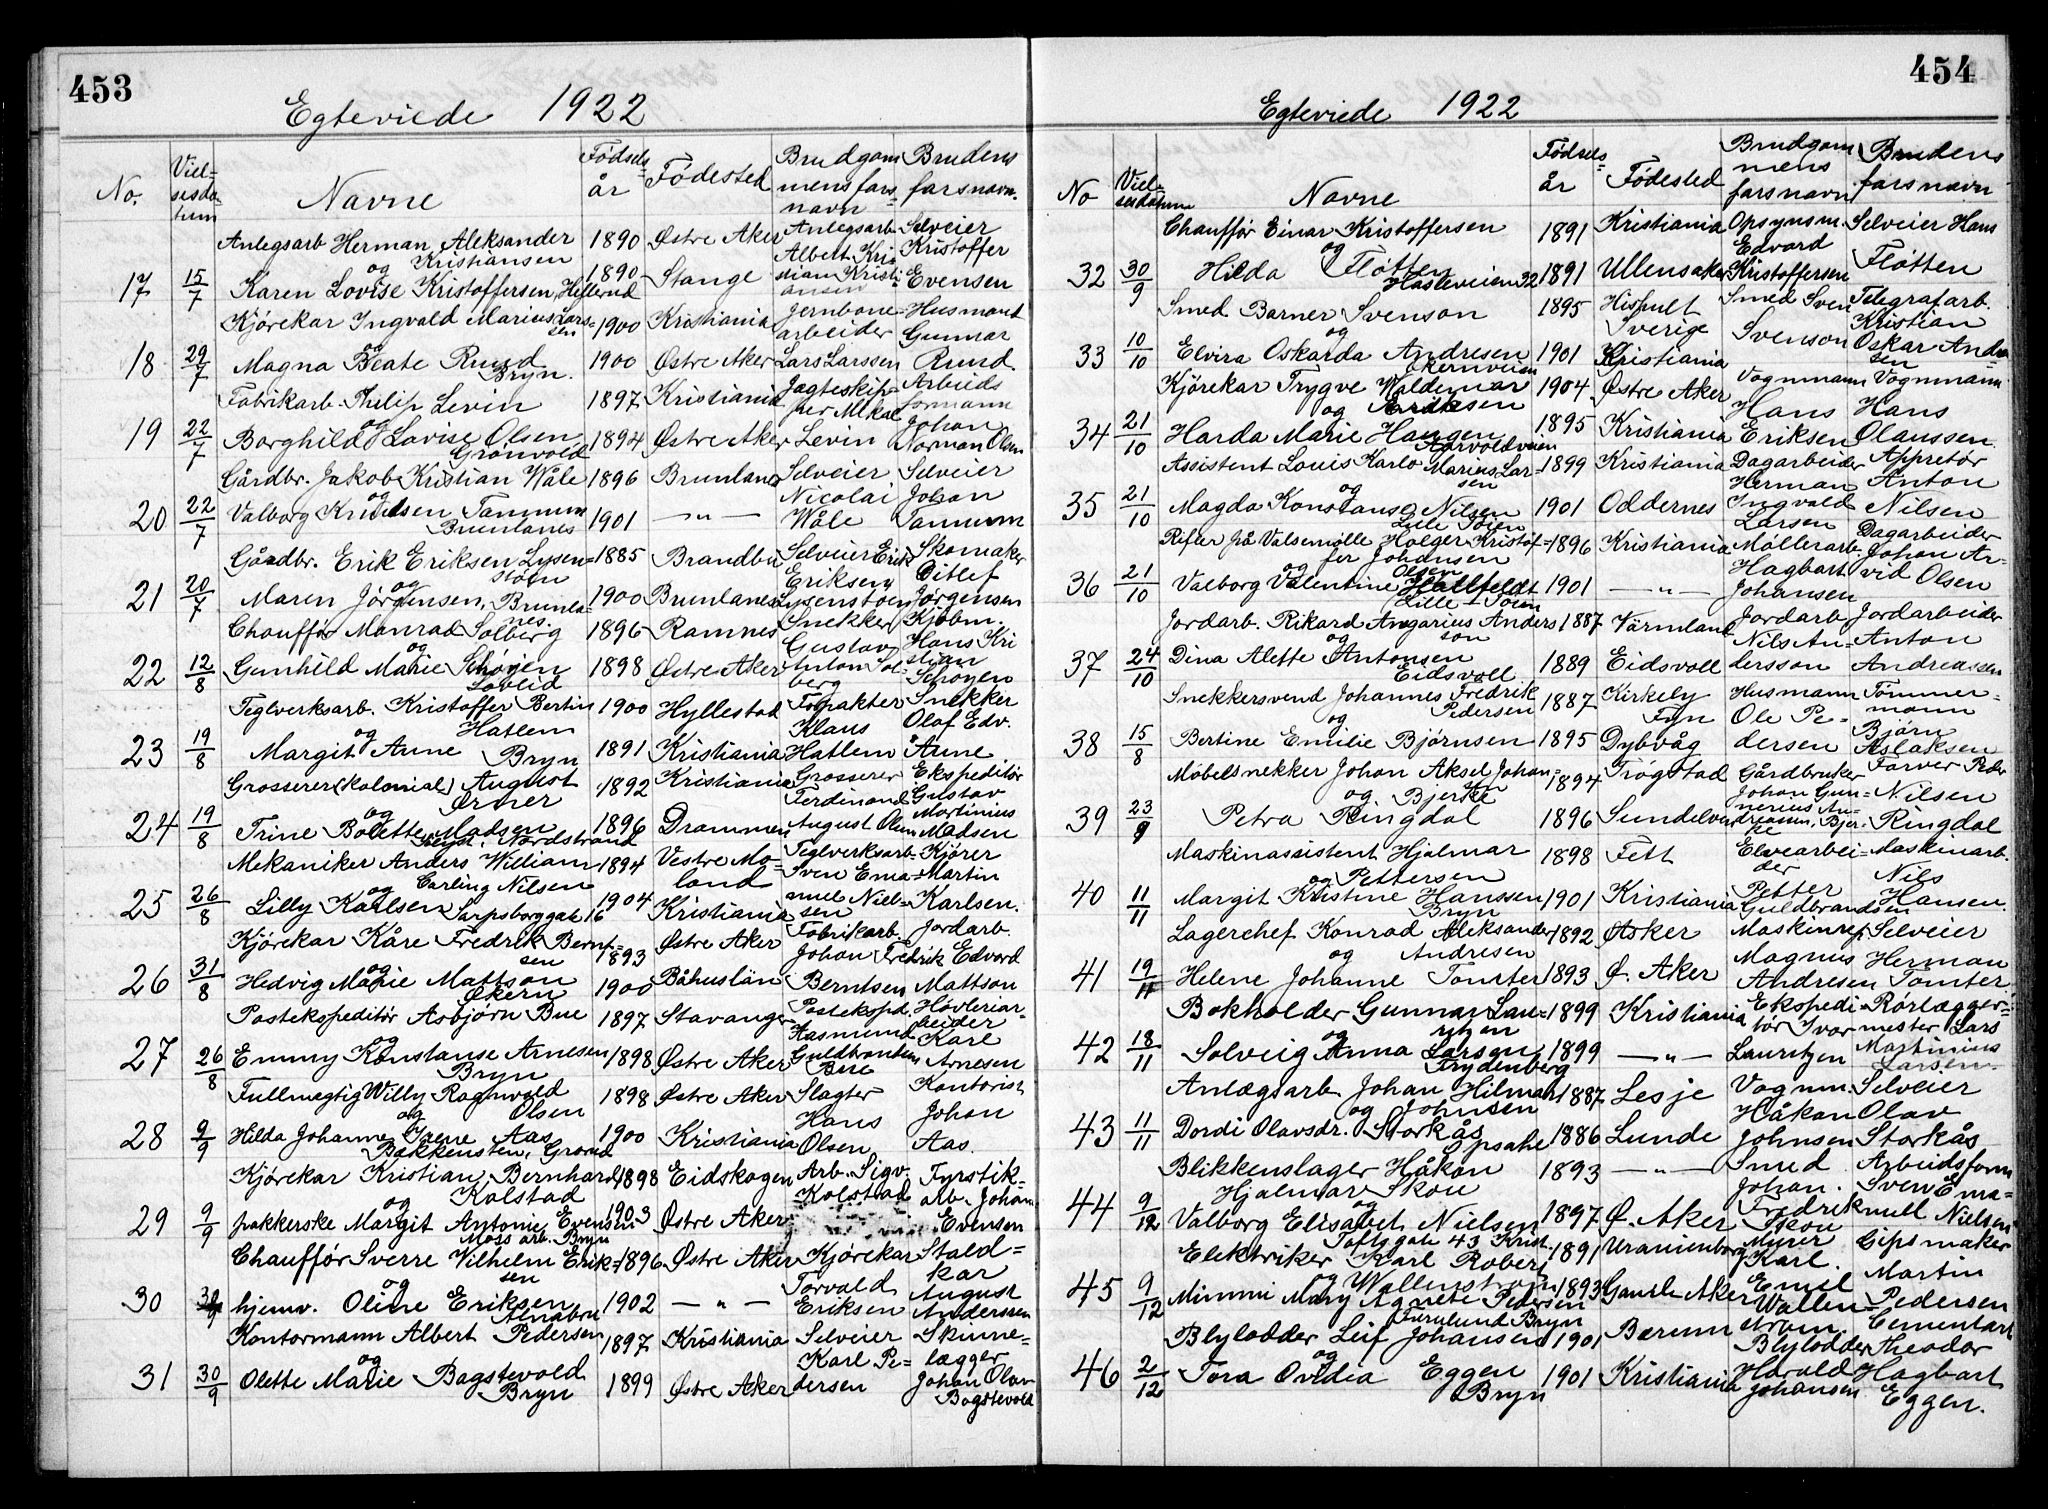 453
Egteviede 1922
No.
Viel-
sesda-
tum
Navne
Fødsels-
år
Fødested
Brudgom
mens fars-
navn
Brudens
farsnavn.
Anlegsarb Herman Aleksander 1890 Østre Aker Anlegsarb Selveier
og Kristiansen Albert Kri Kristoffer
17 15/7 Karen Lovise Kristoffersen, 1890 Stange stian Kristi- Evensen
ansen
Kjørekar Ingvald Marius Lars- 1900 Kristiania Jernbane- Husmand
sen arbeider Gunnar
18 29/7 Magna og Beate Ruud 1900 Østre Aker Lars Larssen Ruud.
Bryn.
Fabrikarb. Philip Levin 1897 Kristiania Jagteskip- Arbeids
per Mikal formann
19 22/7 Borghild og Lovise Olsen 1894 Østre Aker Levin Johan
Grønvold Norman Olsen
Gårdbr. Jakob Kristian Wåle 1896 Brunlanes Selveier Selveier
og Nicolai Johan
20 22/7 Valborg Knudsen Tannum 1901 — " — Wåle Tannum
Brunlanes
Gårdbr. Erik Eriksen Lysen- 1885 Brandbu Selveier Erik Skomaker
støen Eriksen Ditlef
21 20/7 Maren og Jørgensen, Brunla- 1900 Brunlanes Lysenstøen Jørgensen
nes.
Chauffør Monrad Solberg 1896 Ramnes Snekker Kjøbm.
og Gustav Hans Kri
22 12/8 Gunhild Marie Schøyen 1898 Østre Aker Anton Sol- stian
Sovlid berg Schøyen
Teglverksarb. Kristoffer Bertin 1900 Hyllestad Forpakter Snekker
Hatlem Klaus Olaf Edv.
23 19/8 Margit og Aune Bryn 1891 Kristiania Hatlem Aune
Grosserer (kolonial) August 1892 Kristiania Grosserer Ekspeditør
Ørner Ferdinand Gustav
24 19/8 Trine og Bolette Madsen 1896 Drammen August Martinius
Nordstrand Madsen
Mekaniker Anders William 1894 Vestre Mo- Teglverksarb. Kjører
og Carling Nilsen land Sven Ema- Martin
25 26/8 Lilly Karlsen Sarpsborggate 16 1904 Kristiania nuel Niel- Karlsen.
sen
Kjørekar Kåre Fredrik Bernt- 1893 Østre Aker Fabrikarb. Jordarb.
sen Johan Fredrik Edvard
26 31/8 Hedvig og Marie Mattson 1900 Båhuslän Berntsen Mattson
Økern
Postekspeditør Asbjørn Bue 1897 Stavanger Postekspd. Høvleriar-
og Aasmund beider
27 26/8 Emmy Konstanse Arnesen 1898 Østre Aker Guldbrandsen Karl
Bryn Bue Arnesen
Fullmegtig Willy Ragnvald 1898 Østre Aker Slagter Kontorist
og Olsen Hans Johan
28 9/9 Hilda Johanne Irene Aas 1900 Kristiania Olsen Aas.
Bakkensten, Grorud
Kjørekar Kristian Bernhard 1898 Eidskogen Arb. Sigv. Fyrstik-
og Kolstad Kolstad arb. Johan
29 9/9 pakkerske Margit Antonie Evensen 1903 Østre Aker Evensen
Moss arb. Bryn
Chauffør Sverre Vilhelm Erik- 1896 Østre Aker Kjørekar Stald-
sen Torvald kar
30 hjemv. Oline og Eriksen 1902 — " — Eriksen August
Alnabru Anderssen
Kontormann Albert Pedersen 1897 Kristiania Selveier Skinne-
og Karl Pe- lægger
31 30/9 Olette Marie Bogstevold 1899 Østre Aker dersen Johan Olav
Bryn Bogstevold
454
Egteviede 1922
No
Viel-
sesdatum
Navne
Fødsels-
år
Fødested
Brudgom
mens
farsnavn
Brudens
farsnavn
Chauffør Einar Kristoffersen 1891 Kristiania Opsynsm. Selveier Hans
og Edvard
32 30/9 Hilda Fløtten 1891 Ullensaker Kristoffersen Fløtten
Hasleveien 32
Smed Barner Svenson 1895 Hishult Smed Sven Telegrafarb.
og Sverige Svenson Kristian
33 10/10 Elvira Oskarda Andresen 1901 Kristiania Oskar Andre-
Økernveien sen
Kjørekar Trygve Waldemar 1904 Østre Aker Vognmann Vognmann
og Eriksen Hans Hans
34 21/10 Harda Marie Haugen 1895 Kristiania Eriksen Olaussen.
Aarvoldveien
Assistent Louis Karlo Marius Lar- 1899 Kristiania Dagarbeider Appretør
sen Herman Anton
35 21/10 Magda og Konstanse Nilsen 1901 Oddernes Ingvald Nilsen
Lille Tøien Larsen
Rifler på Valsemølle Holger Kristof- 1896 Kristiania Møllerarb. Dagarbeider
fer Johansen Johan Ar-
36 21/10 Valborg og Valentine Olsen 1901 — " — Hagbart vid Olsen
Lille-Tøien Johansen
Jordarb. Rikard Angarius Anders 1887 Värmland Jordarb Jordarbeider
og son Nils An- Anton
37 24/10 Dina Alette Antonsen 1889 Eidsvoll dersson Andreassen
Eidsvoll.
Snekkersvend Johannes Fredrik 1887 Kirkely Husmann Tømmer-
og Pedersen Fyn Ole Pe- mann
38 15/8 Bertine Emilie Bjørnsen 1895 Dybvåg dersen Bjørn
Aslaksen
Møbelsnekker Johan Aksel Johan- 1894 Trøgstad Gårdbruker Farver Peder
og Bjerke Johan Gun- Nilsen
39 23/9 Petra Ringdal 1896 nerius An- Ringdal
dreassen, Bjer-
ke
Maskinassistent Hjalmar 1898 Fett Elvearbei- Maskinarb.
og Pettersen der Nils
40 11/11 Margit Kristine Hanssen 1901 Kristiania Petter Hansen.
Bryn Guldbrandsen
Lagerchef Konrad Aleksander 1892 Asker Maskinrep. Selveier
og Andresen Magnus Herman
41 19/11 Helene Johanne Tomter 1893 Ø. Aker Andresen Tomter.
Bokholder Gunnar Lau- 1899 Kristiania Ekspedi- Rørlægger-
og ritzen tør Ivar mester Lars
42 18/11 Solveig Anna Larsen 1899 — " — Lauritzen Martinius
Frydenberg Larsen.
Anlægsarb. Johan Hilmar 1887 Lesje Vognm. Selveier
og Johnsen Håkan Olav
43 11/11 Dordi Olavsdr. Storkås 1886 Lunde Johnsen Storkås
Opsahl
Blikkenslager Håkon 1893 — " — Smed Arbeidsform
Hjalmar Skou Johan. Sven Ema-
44 9/12 Valborg og Elisabet Nielsen 1897 Ø. Aker Fredrik nuel Nielsen
Toftsgate 43 Krist. Skou
Elektriker Karl Robert 1891 Uranienborg Murer Gipsmaker
og Wallenstrøm Karl. Martin
45 9/12 Mimmi Mary Agnete Pedersen 1893 Gamle Aker Emil Pedersen
Furulund Bryn Wallen-
strøm
Blylodder Leif Johansen 1901 Bærum Blylodder Cementarb
og Harald Theodor
46 2/12 Tora Ovidia Eggen 1901 Kristiania Johansen Hagbart
Bryn Eggen.